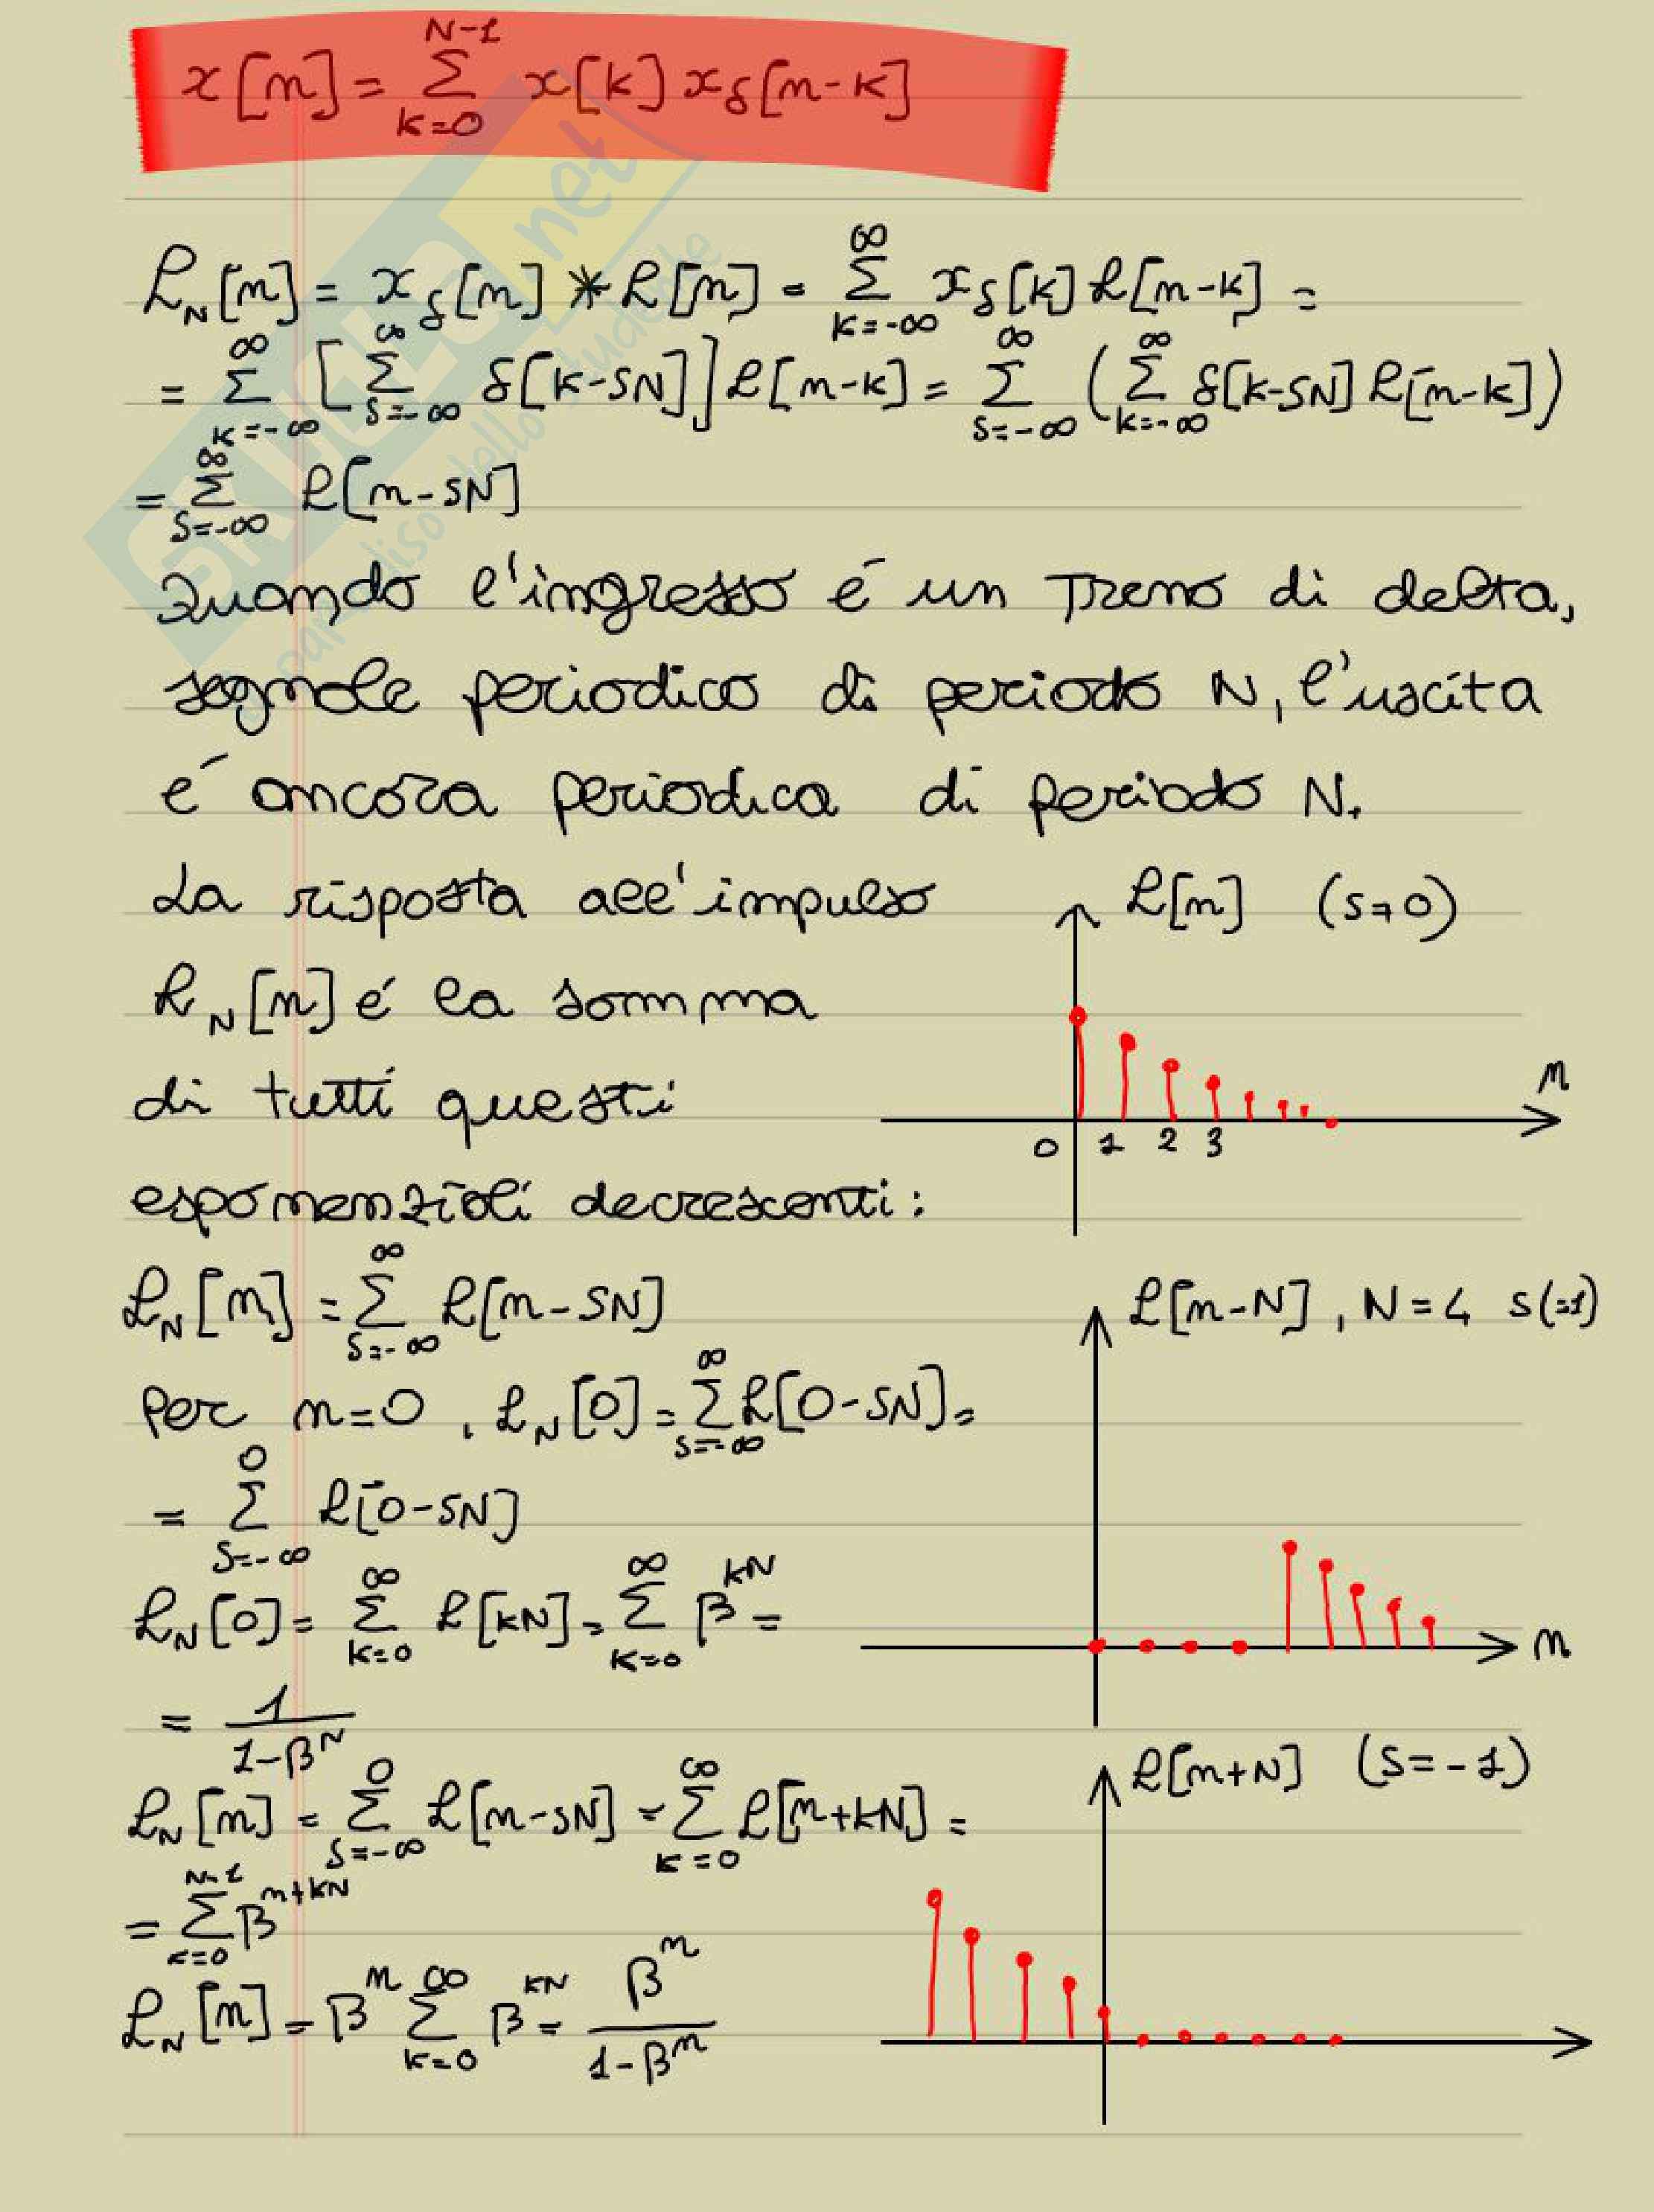 x[n] = Σ_{k=0}^{N-1} x[k] xδ[n-k]
h_N[n] = xδ[n] * h[n] = Σ_{k=-∞}^{∞} xδ[k] h[n-k] =
= Σ_{k=-∞}^{∞} [Σ_{s=-∞}^{∞} δ[k-sN]] h[n-k] = Σ_{s=-∞}^{∞} (Σ_{k=-∞}^{∞} δ[k-sN] h[n-k])
= Σ_{s=-∞}^{∞} h[n-sN]
Quando l'ingresso é un treno di delta,
segnale periodico di periodo N, l'uscita
é ancora periodica di periodo N.
La risposta all'impulso
h_N[n] é la somma
di tutti questi
esponenziali decrescenti:
h[n] (s=0)
n
0 1 2 3
h_N[n] = Σ_{s=-∞}^{∞} h[n-sN]
h[n-N], N=4 s(=1)
Per n=0, h_N[0] = Σ_{s=-∞}^{∞} h[0-sN] =
= Σ_{s=-∞}^{0} h[0-sN]
h_N[0] = Σ_{k=0}^{∞} h[kN] = Σ_{k=0}^{∞} β^{kN} =
n
= 1/(1-β^N)
h[n+N] (s=-1)
h_N[n] = Σ_{s=-∞}^{0} h[n-sN] = Σ_{k=0}^{∞} h[n+kN] =
= Σ_{k=0}^{N-1} β^{n+kN}
h_N[n] = β^n Σ_{k=0}^{∞} β^{kN} = β^n/(1-β^n)
SKUOLA.net
paradiso dello studente